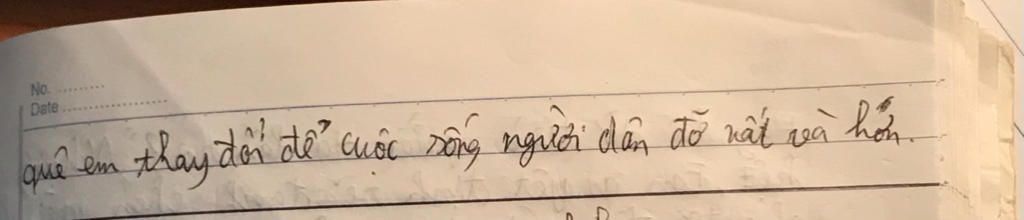 No. ..........
Date ......................
quê em thay đổi để cuộc sống người dân đỡ vất vả hơn.